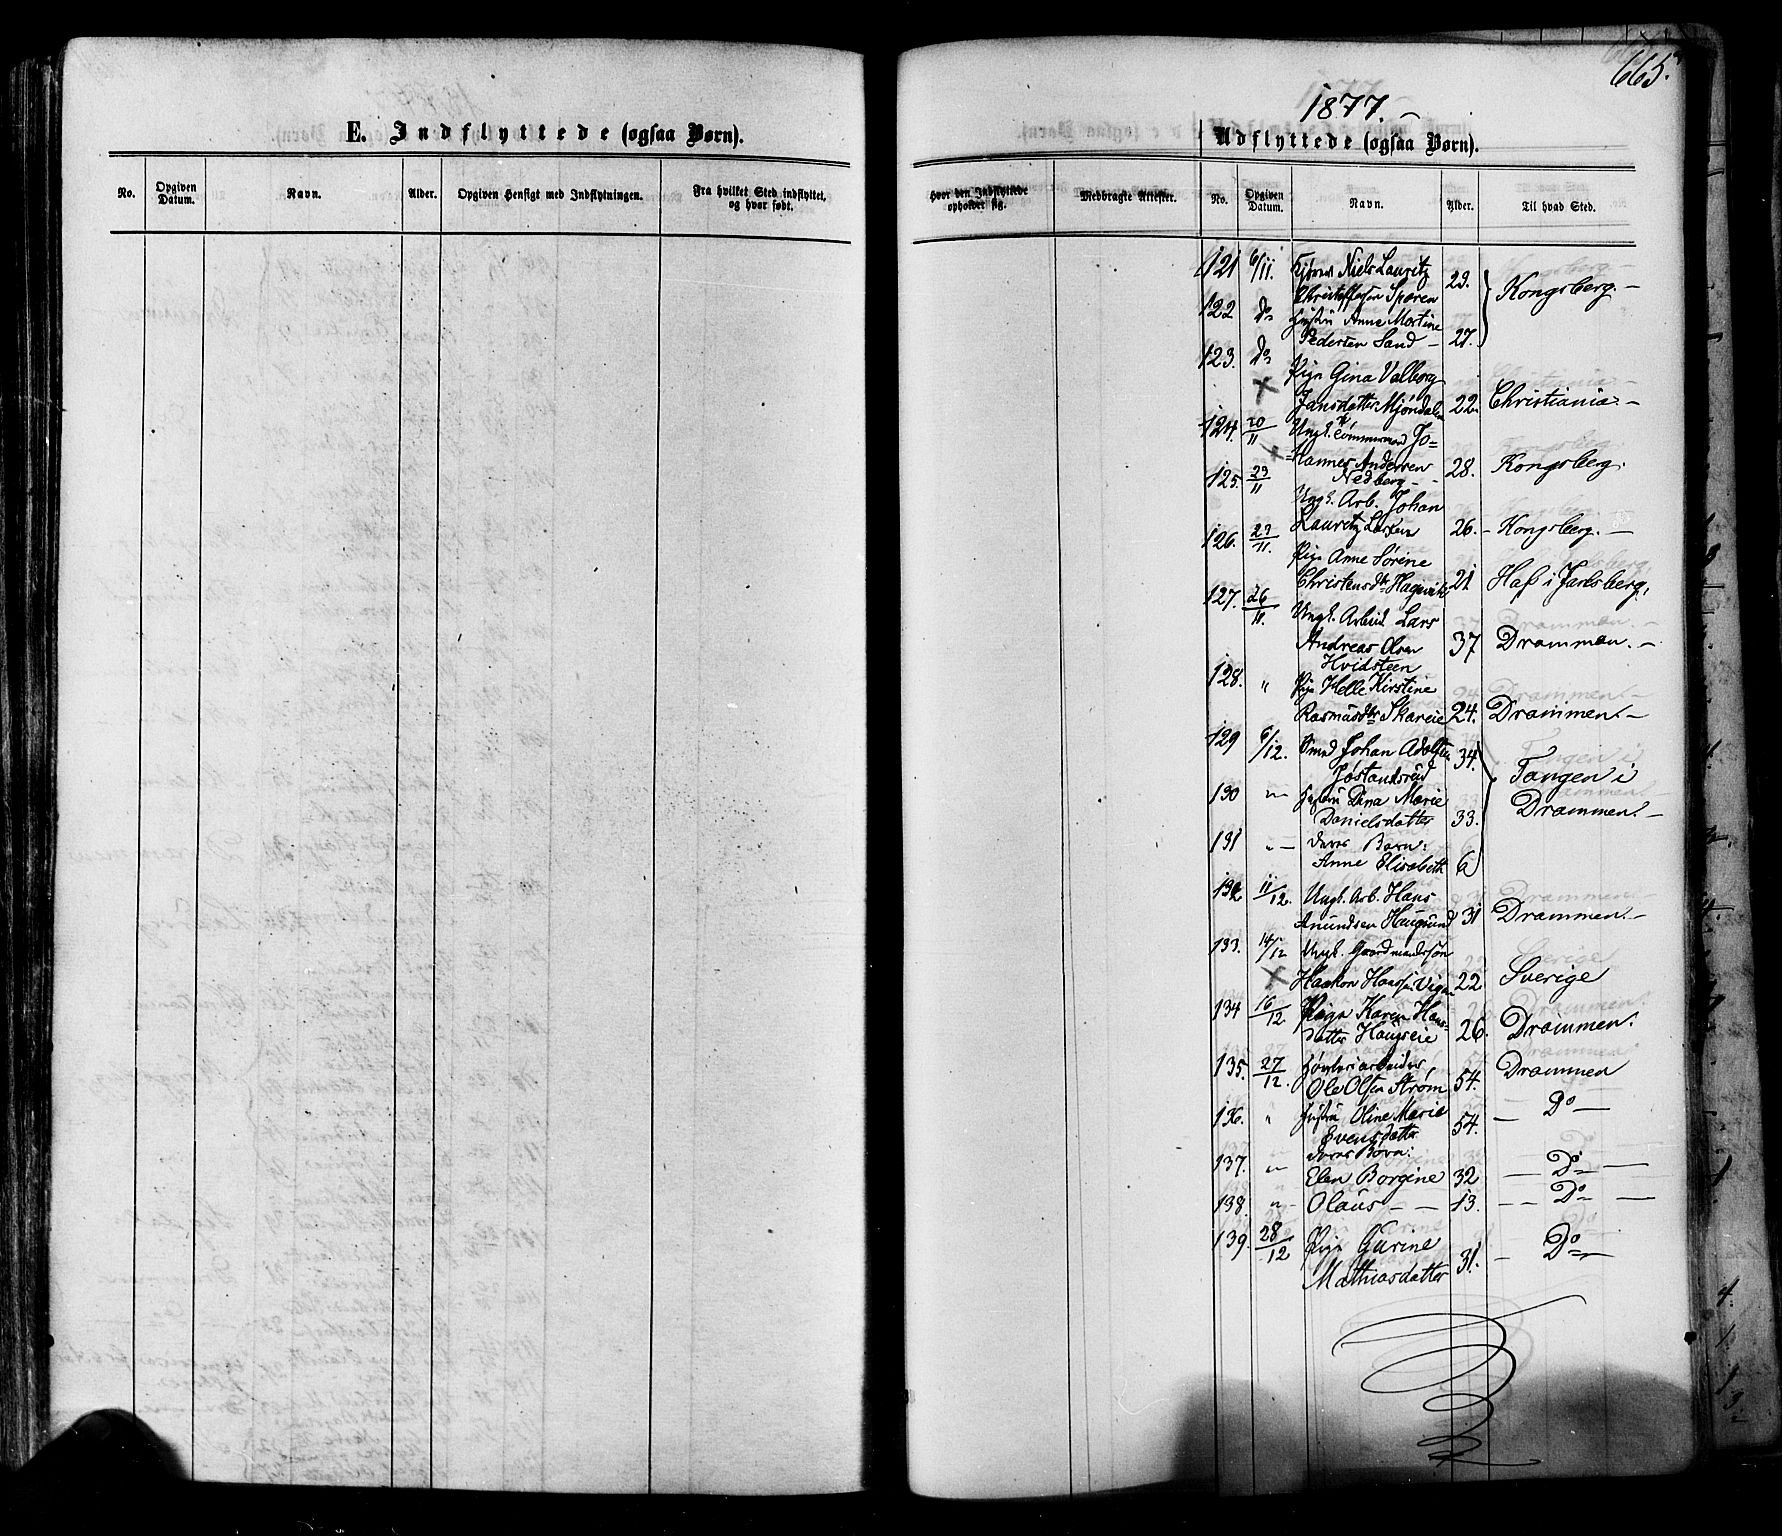 E. Indflyttede (ogsaa Børn).
No.
Opgiven Datum.
Navn.
Alder.
Opgiven Hensigt med Indflytningen.
Fra hvilket Sted indflyttet, og hvor født.
665.
1877.
Udflyttede (ogsaa Børn).
Hvor den Indflyttede opholder sig.
Medbragte Attester.
No.
Opgiven Datum.
Navn.
Alder.
Til hvad Sted.
121 6/11. Niels Lauritz
Christoffersen Sporen 29. Kongsberg. -
122 Do Hustru Anne Martine
Pedersen Sand - 27.
123. Do Pige Gina Valborg
Jansdatter Mjøndalen 22. Christiania. -
124. 20/11 Ungk. Tømmermand Jo=
=hannes Andersen 28. Kongsberg.
Nedberg - -
125. 23/11 Ungk. Arb. Johan
Lauritz Larsen 26. - Kongsberg. -
126. 23/11. Pige Anne Sørine
Christensdtr Hagevik 21 Hof i Jarlsberg.
127. 26/11. Ungk. Arbeid. Lars
Andreas Olsen 37 Drammen. -
Hvidsteen
128. " Pige Helle Kirstine
Rasmusdtr Skareie 24. Drammen. -
129 6/12. Smed Johan Adolfsen 34. Tangen i
Jøstandsrud
130 " Hustru Dina Marie Drammen. -
Danielsdatter 33.
131 " - deres Barn:
Anne Elisabeth 6
132 11/12. Ungk. Arb. Hans
Amundsen Haugsund 31 Drammen. -
133. 14/12 Ungk. Gaardmandssøn
Haakon Hanssen 22 Sverige
134 16/12. Pige Karen Hans=
datter Haugseie 26. Drammen.
135. 27/12. Høvleriarbeider
Ole Olsen Strøm 54. Drammen
136. " Hustru Oline Marie - Do -
Evensdatter 54.
137. " deres Børn:
Elen Borgine 32 - Do -
138. " - Olaus - - 13. - - Do -
139. 28/12 Pige Gurine
Mathiasdatter 31. - Do -